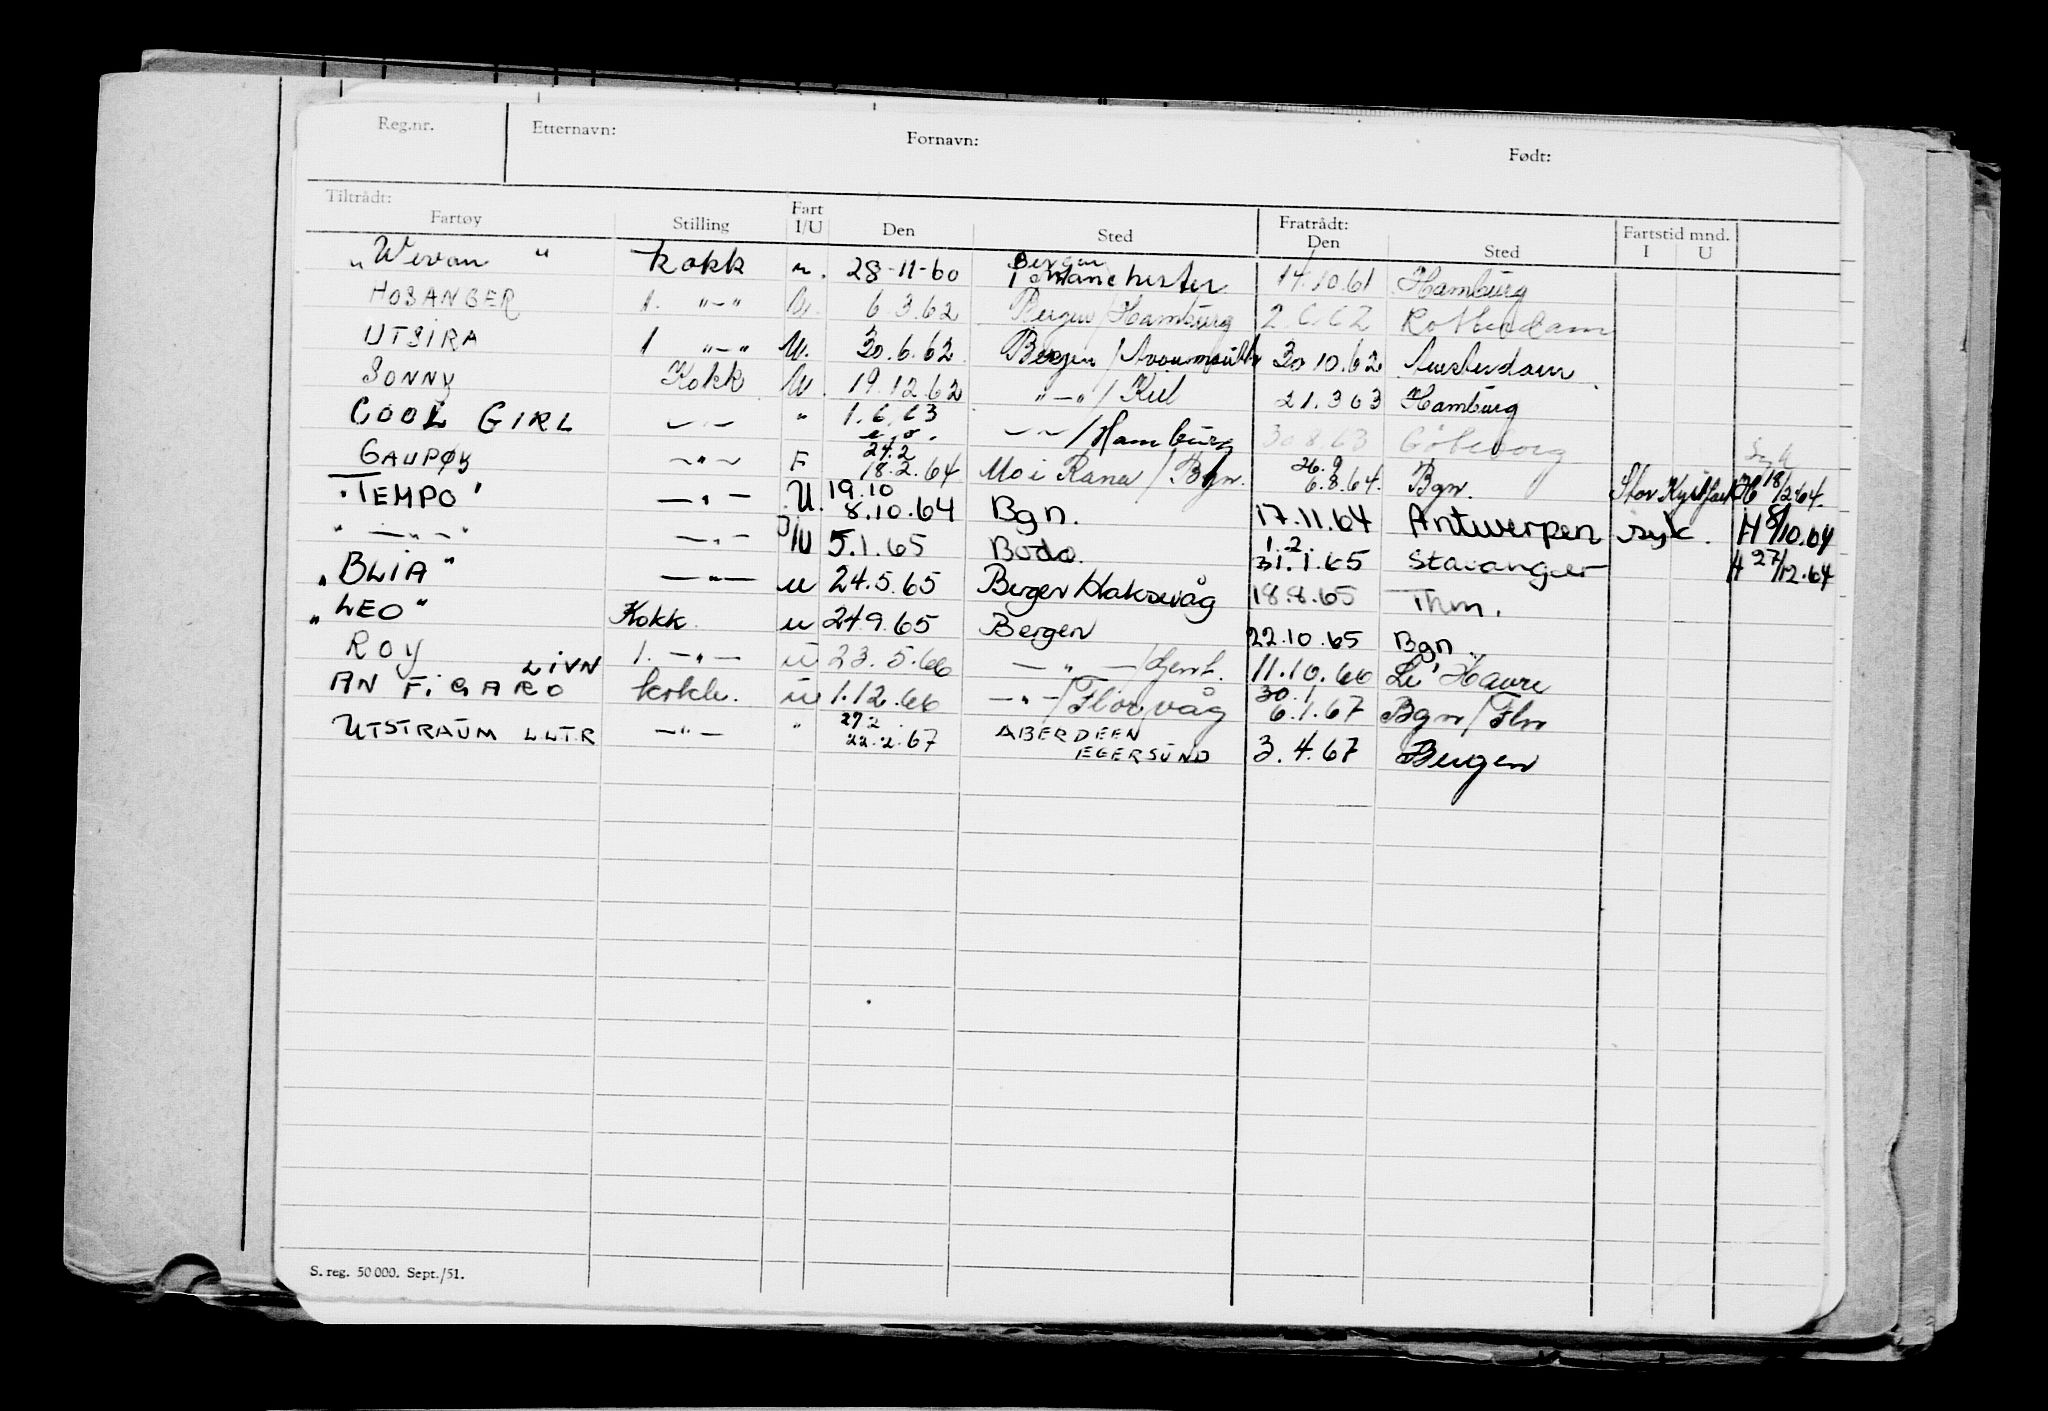 Reg.nr. Etternavn: Fornavn: Født:
Tiltrådt: Fartøy Stilling Fart I/U Den Sted Fratrådt: Den Sted Fartstid mnd. I U
„Wevan" kokk u. 28-11-60 Bergen / Manchester 14.10.61 Hamburg
HOSANGER 1. "—" U. 6.3.62 Bergen / Hamburg 2.6.62 Rotterdam
UTSIRA 1 "—" U. 30.6.62 Bergen / Avonmouth 30.10.62 Amsterdam
SONNY Kokk U. 19.12.62 "—" / Kiel 21.3.63 Hamburg
COOL GIRL —"— " 1.6.63 —"— / Hamburg 30.8.63 Göteborg
GAUPØY —"— F 24.2 18.2.64 Mo i Rana / Bgn. 26.9 6.8.64. Bgn. Stor Kystfart H 18/2.64.
"TEMPO" —"— U. 19.10 8.10.64 Bgn. 17.11.64 Antwerpen syk. H 8/10.64
" —"— " —"— I/U 5.1.65 Bodø. 1.2. 31.1.65 Stavanger H 27/12.64
„BLIA" —"— u 24.5.65 Bergen / 18.8.65 Thm.
„LEO" Kokk u 24.9.65 Bergen 22.10.65 Bgn.
ROY 1. —"— u 23.5.66 —"— / Gent. 11.10.66 Le Havre
AN FIGARO LIVN kokk. u 1.12.66 —"— / Florvåg 30.1 6.1.67 Bgn / Flv
UTSTRAUM LLTR —"— " 27.2. 22.2.67 ABERDEEN EGERSUND 3.4.67 Bergen
S. reg. 50 000. Sept./51.